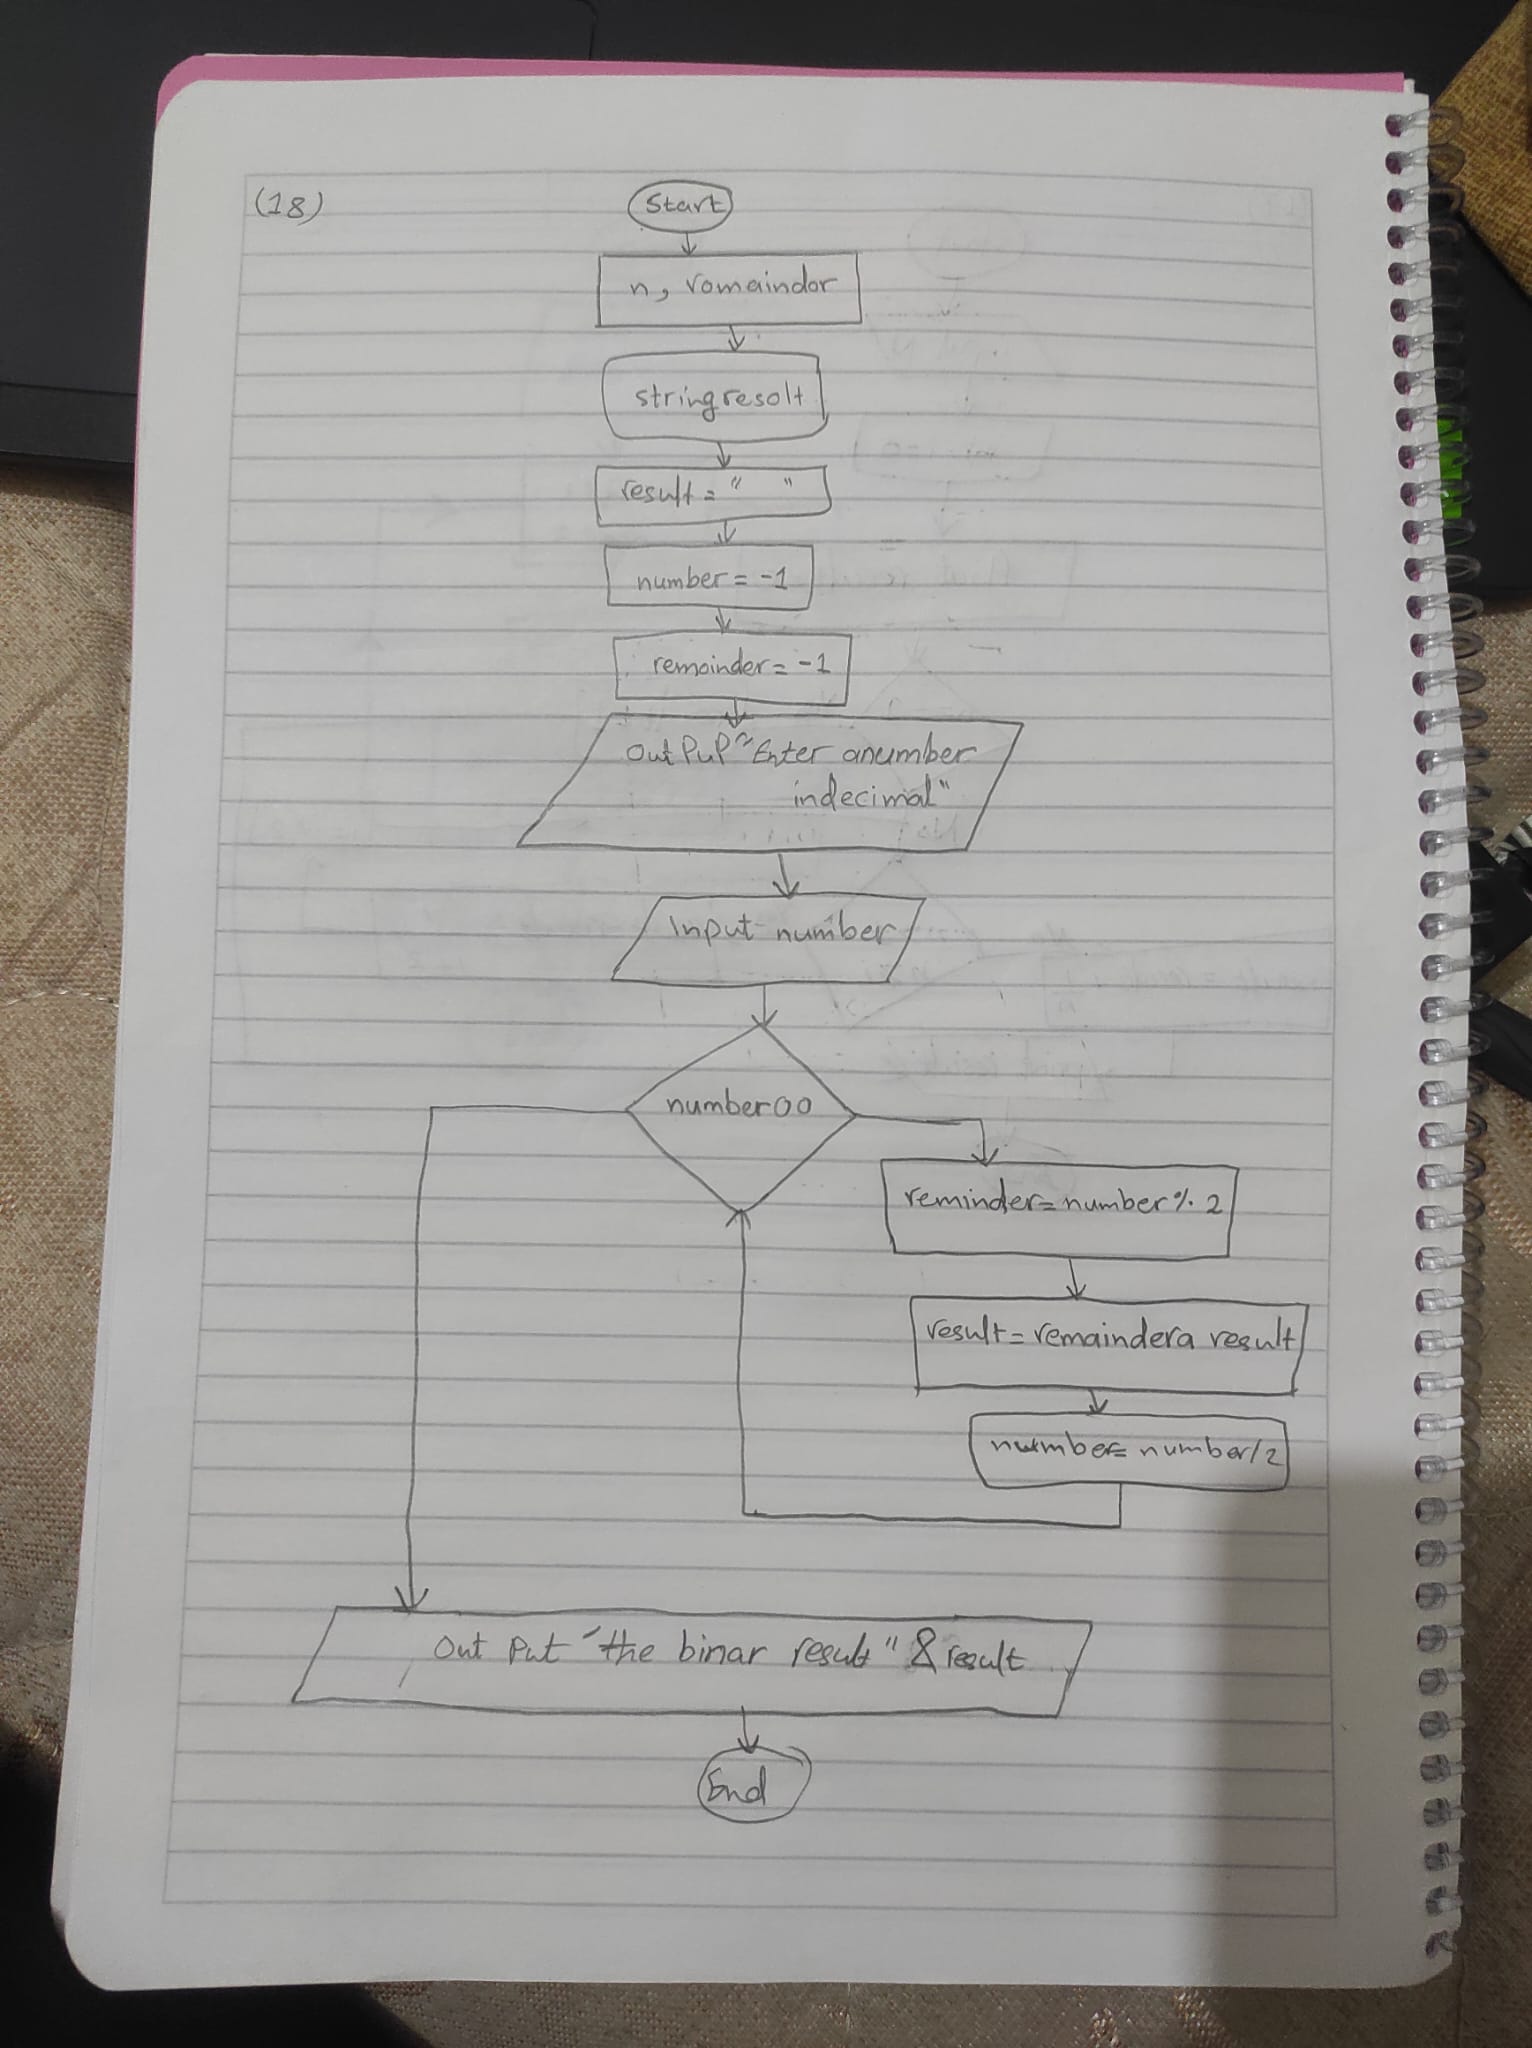 (18)
Start
n, romaindor
string resolt
result = " "
number = -1
remainder = -1
OutPuP "Enter anumber
indecimal"
Input number
number00
reminder= number % 2
result = remaindera result
number= number/2
Out Put "the binar result" & result
End